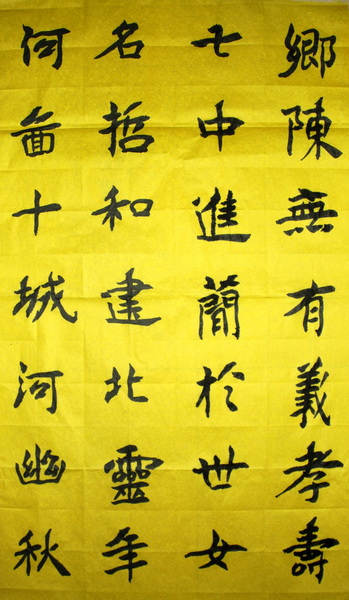 鄉陳無有義孝壽
七中進簡於世女
名哲和建北靈年
何面十城河幽秋